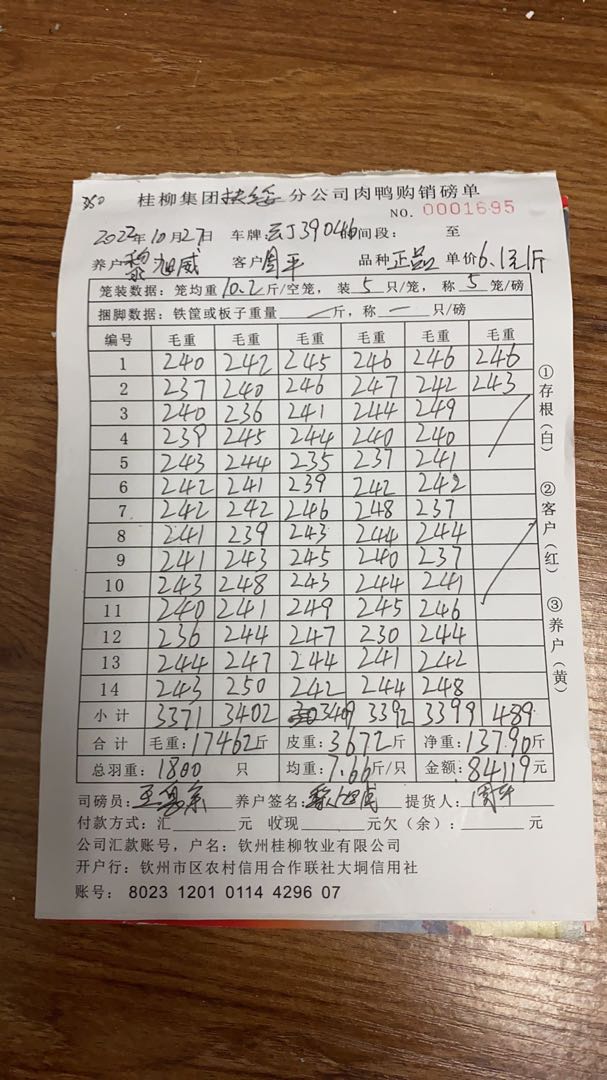 350
桂柳集团扶绥分公司肉鸭购销磅单
NO. 0001695
2022年10月27日 车牌:云J39046 时间段: 至
养户黎旭威 客户周平 品种正品 单价6.1元1斤
笼装数据: 笼均重10.2斤/空笼, 装5只/笼, 称5笼/磅
捆脚数据: 铁筐或板子重量 — 斤, 称 — 只/磅
编号 毛重 毛重 毛重 毛重 毛重 毛重
1 240 242 245 246 246 246
2 237 240 246 247 242 243
3 240 236 241 244 249
4 239 245 244 240 240
5 243 244 235 237 241
6 242 241 239 242 242
7 242 242 246 248 237
8 241 239 243 244 244
9 241 243 245 240 237
10 243 248 243 244 241
11 240 241 249 245 246
12 236 244 247 230 244
13 244 247 244 241 242
14 243 250 242 244 248
小计 3371 3402 3409 3392 3399 489
合计 毛重:17462斤 皮重:3672斤 净重:13790斤
总羽重: 1800 只 均重:7.66斤/只 金额:84119元
司磅员: 养户签名:黎旭威 提货人:周平
付款方式: 汇 元 收现 元欠(余): 元
公司汇款账号, 户名: 钦州桂柳牧业有限公司
开户行: 钦州市区农村信用合作联社大垌信用社
账号: 8023 1201 0114 4296 07
①存根(白)
②客户(红)
③养户(黄)